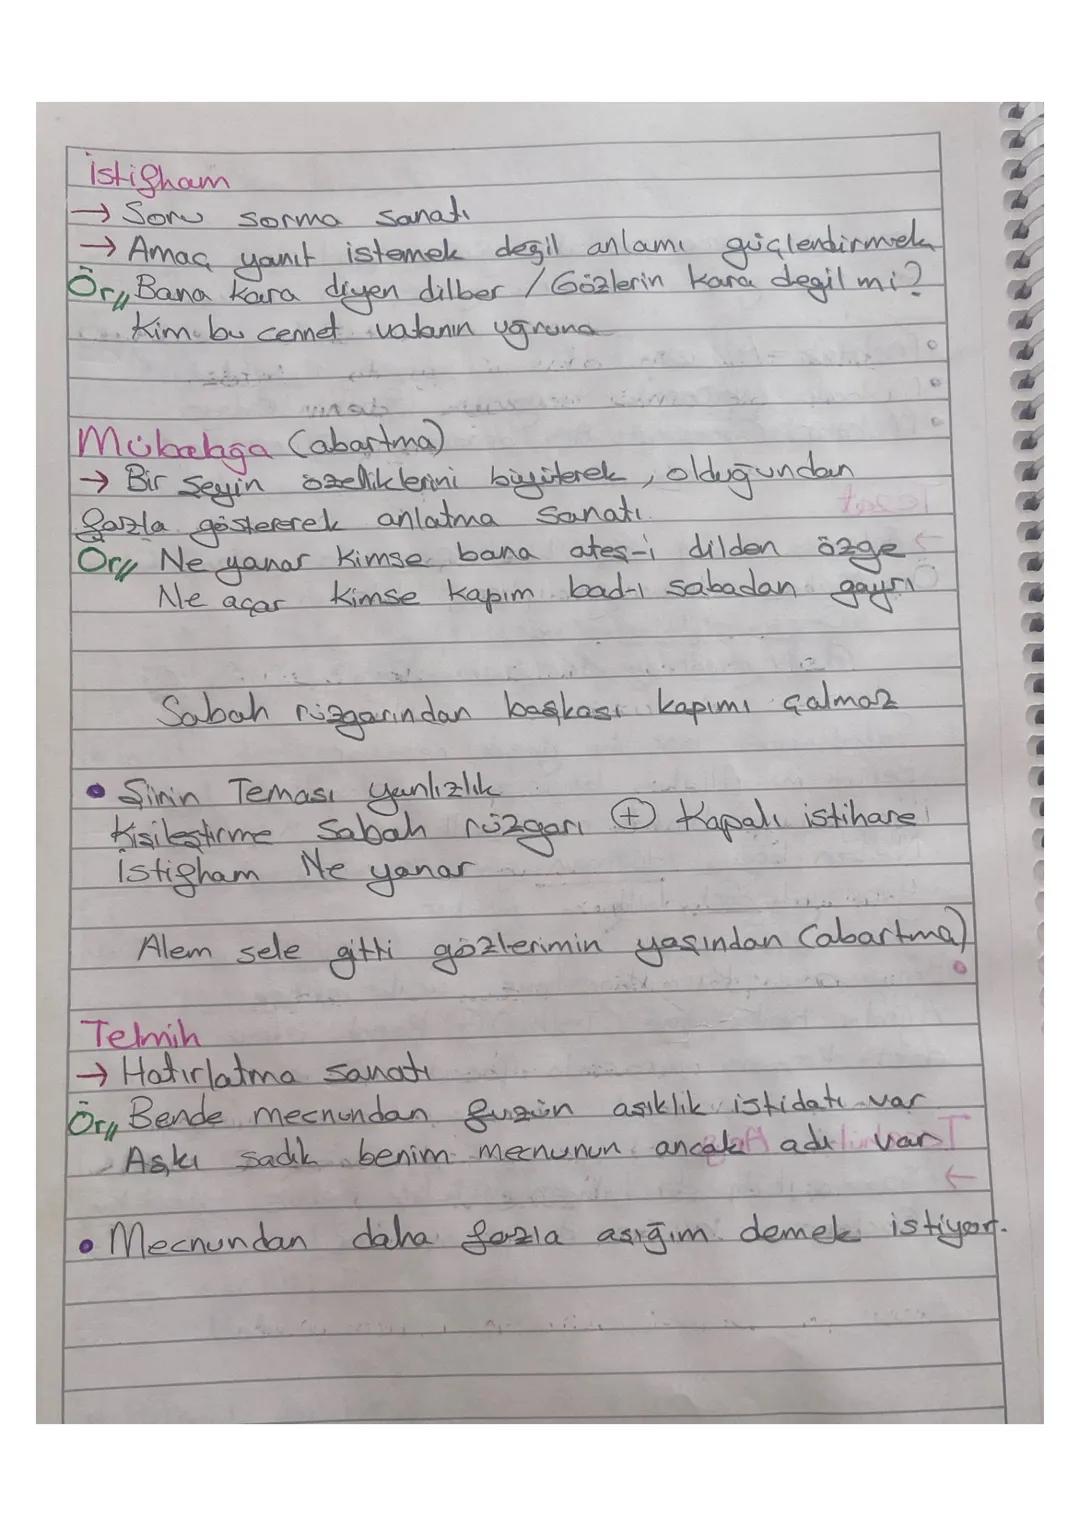 istifham
→ Soru sorma sanatı
→ Amaç yanıt istemek değil anlamı güçlendirmek
Ör// Bana kara diyen dilber / Gözlerin kara degil mi?
Kim bu cennet vatanın uğruna
Mübalağa (abartma)
→ Bir şeyin özelliklerini büyüterek, olduğundan
fazla göstererek anlatma sanatı
Ör// Ne yanar kimse bana ateş-i dilden özge
Ne açar kimse kapım bad-ı sabadan gayrı
Sabah rüzgarından başkası kapımı çalmaz
• Şiirin Teması yanlızlık
Kişileştirme Sabah rüzgarı + Kapalı istihare
İstifham Ne yanar
Alem sele gitti gözlerimin yaşından (abartma)
Telmih
→ Hatırlatma sanatı
Ör// Bende mecnundan fuzün aşıklık istidatı var
Aşkı sadık benim mecnunun ancak adı var
• Mecnundan daha fazla aşığım demek istiyor.